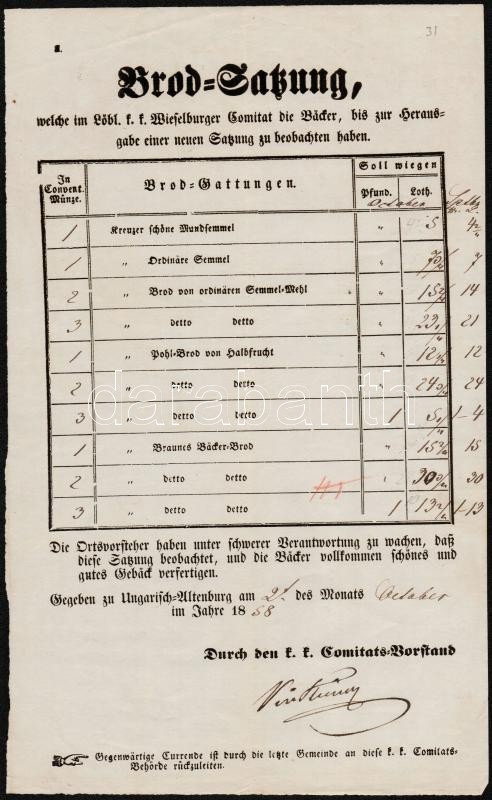 31
1.
Brod=Satzung,
welche im Löbl. k. k. Wieselburger Comitat die Bäcker, bis zur Heraus=
gabe einer neuen Satzung zu beobachten haben.
In Convent. Münze. Brod=Gattungen. Soll wiegen
Pfund. Loth.
October
1 Kreuzer schöne Mundsemmel „ 5
1 „ Ordinäre Semmel „ 7
2 „ Brod von ordinären Semmel=Mehl „ 15 14
3 „ detto detto „ 23 21
1 „ Pohl=Brod von Halbfrucht „ 12 12
2 „ detto detto „ 24 24
3 „ detto detto 1 5 1-4
1 „ Braunes Bäcker=Brod „ 15 15
2 „ detto detto „ 30 30
3 „ detto detto 1 13 1-13
darabanth
Die Ortsvorsteher haben unter schwerer Verantwortung zu wachen, daß
diese Satzung beobachtet, und die Bäcker vollkommen schönes und
gutes Gebäck verfertigen.
Gegeben zu Ungarisch=Altenburg am 2t. des Monats October
im Jahre 1858
Durch den k. k. Comitats=Vorstand
Gegenwärtige Currende ist durch die letzte Gemeinde an diese k. k. Comitats=
Behörde rückzuleiten.